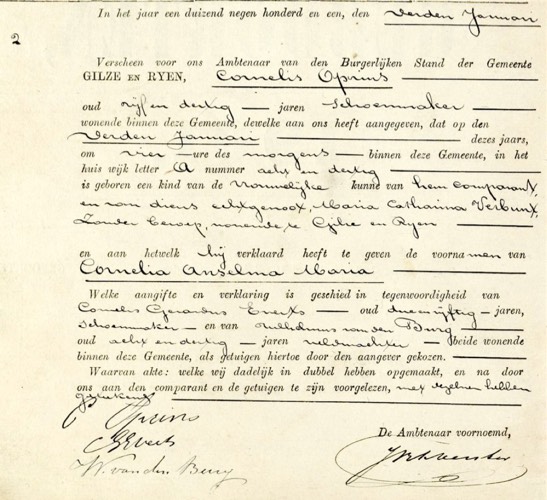 In het jaar een duizend negen honderd en een, den derden Januari
2
Verscheen voor ons Ambtenaar van den Burgerlijken Stand der Gemeente
GILZE EN RYEN, Cornelis Oprins
oud vijf en dertig jaren Schoenmaker
wonende binnen deze Gemeente, dewelke aan ons heeft aangegeven, dat op den
derden Januari dezes jaars,
om vier ure des morgens binnen deze Gemeente, in het
huis wijk letter A nummer acht en dertig
is geboren een kind van de vrouwelijke kunne van hem comparant,
en van diens echtgenoot, Maria Catharina Verbunt,
zonder beroep, wonende te Gilze en Ryen
en aan hetwelk hij verklaard heeft te geven de voornamen van
Cornelia Anselma Maria
Welke aangifte en verklaring is geschied in tegenwoordigheid van
Cornelis Gerardus Everts oud drie en vijftig jaren,
schoenmaker en van Wilhelmus van den Burg
oud acht en dertig jaren veldwachter beide wonende
binnen deze Gemeente, als getuigen hiertoe door den aangever gekozen.
Waarvan akte: welke wij dadelijk in dubbel hebben opgemaakt, en na door
ons aan den comparant en de getuigen te zijn voorgelezen, met dezelven hebben
geteekend
Oprins
CGEverts
De Ambtenaar voornoemd,
W. van den Berg